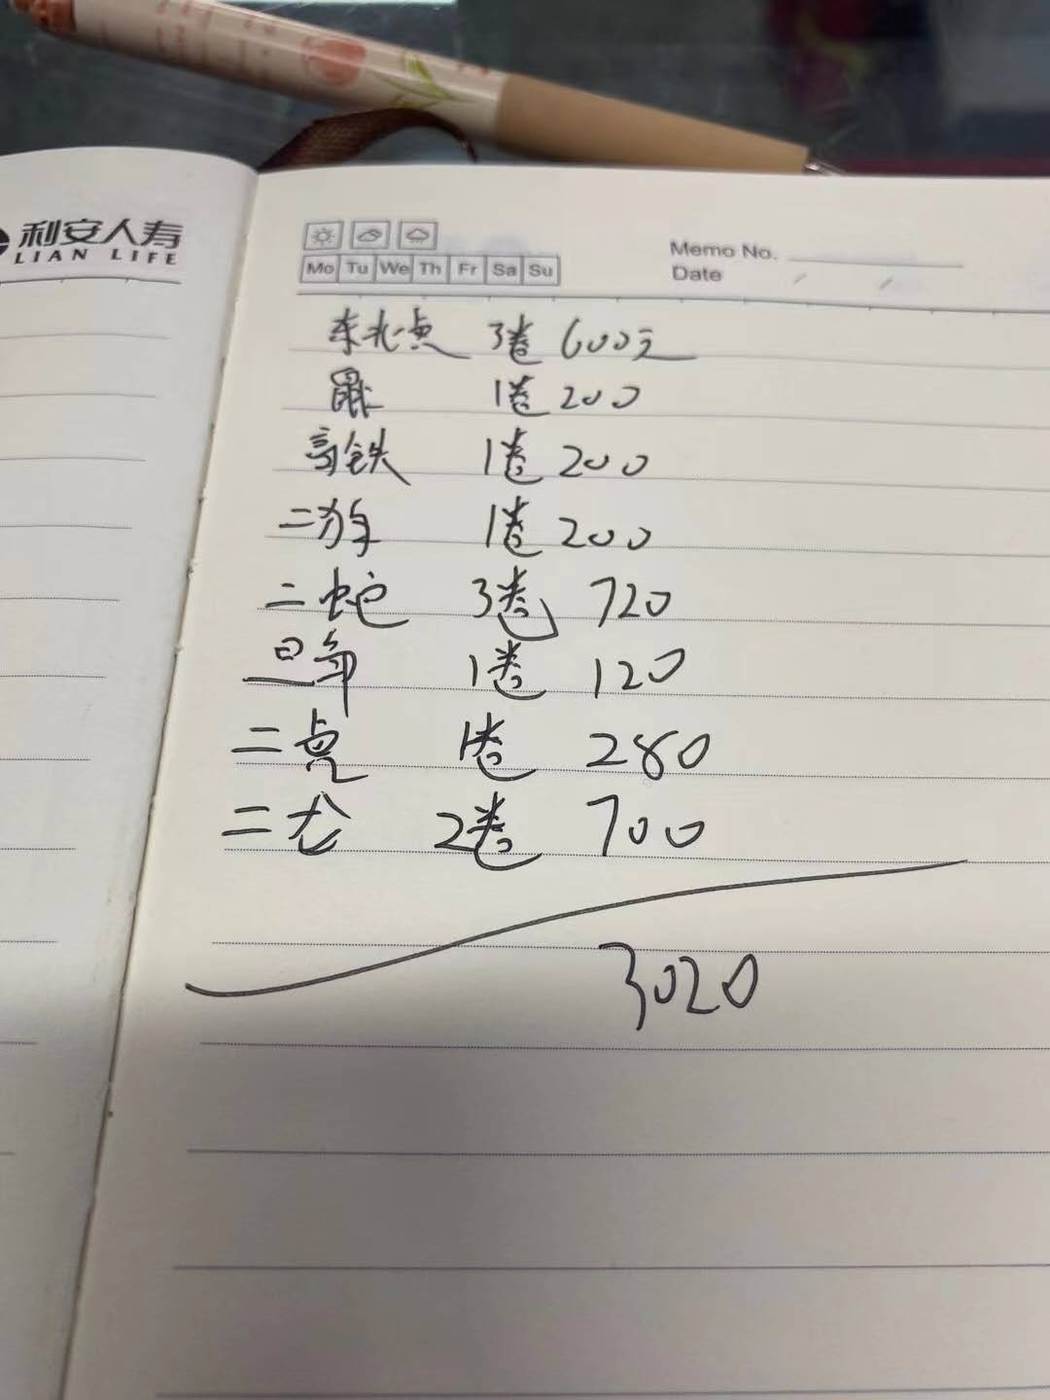 利安人寿
LIAN LIFE
Memo No.
Mo Tu We Th Fr Sa Su
Date / /
东北虎 3卷 600元
鼠 1卷 200
高铁 1卷 200
二羊 1卷 200
二蛇 3卷 720
贺年 1卷 120
二虎 1卷 280
二龙 2卷 700
3020